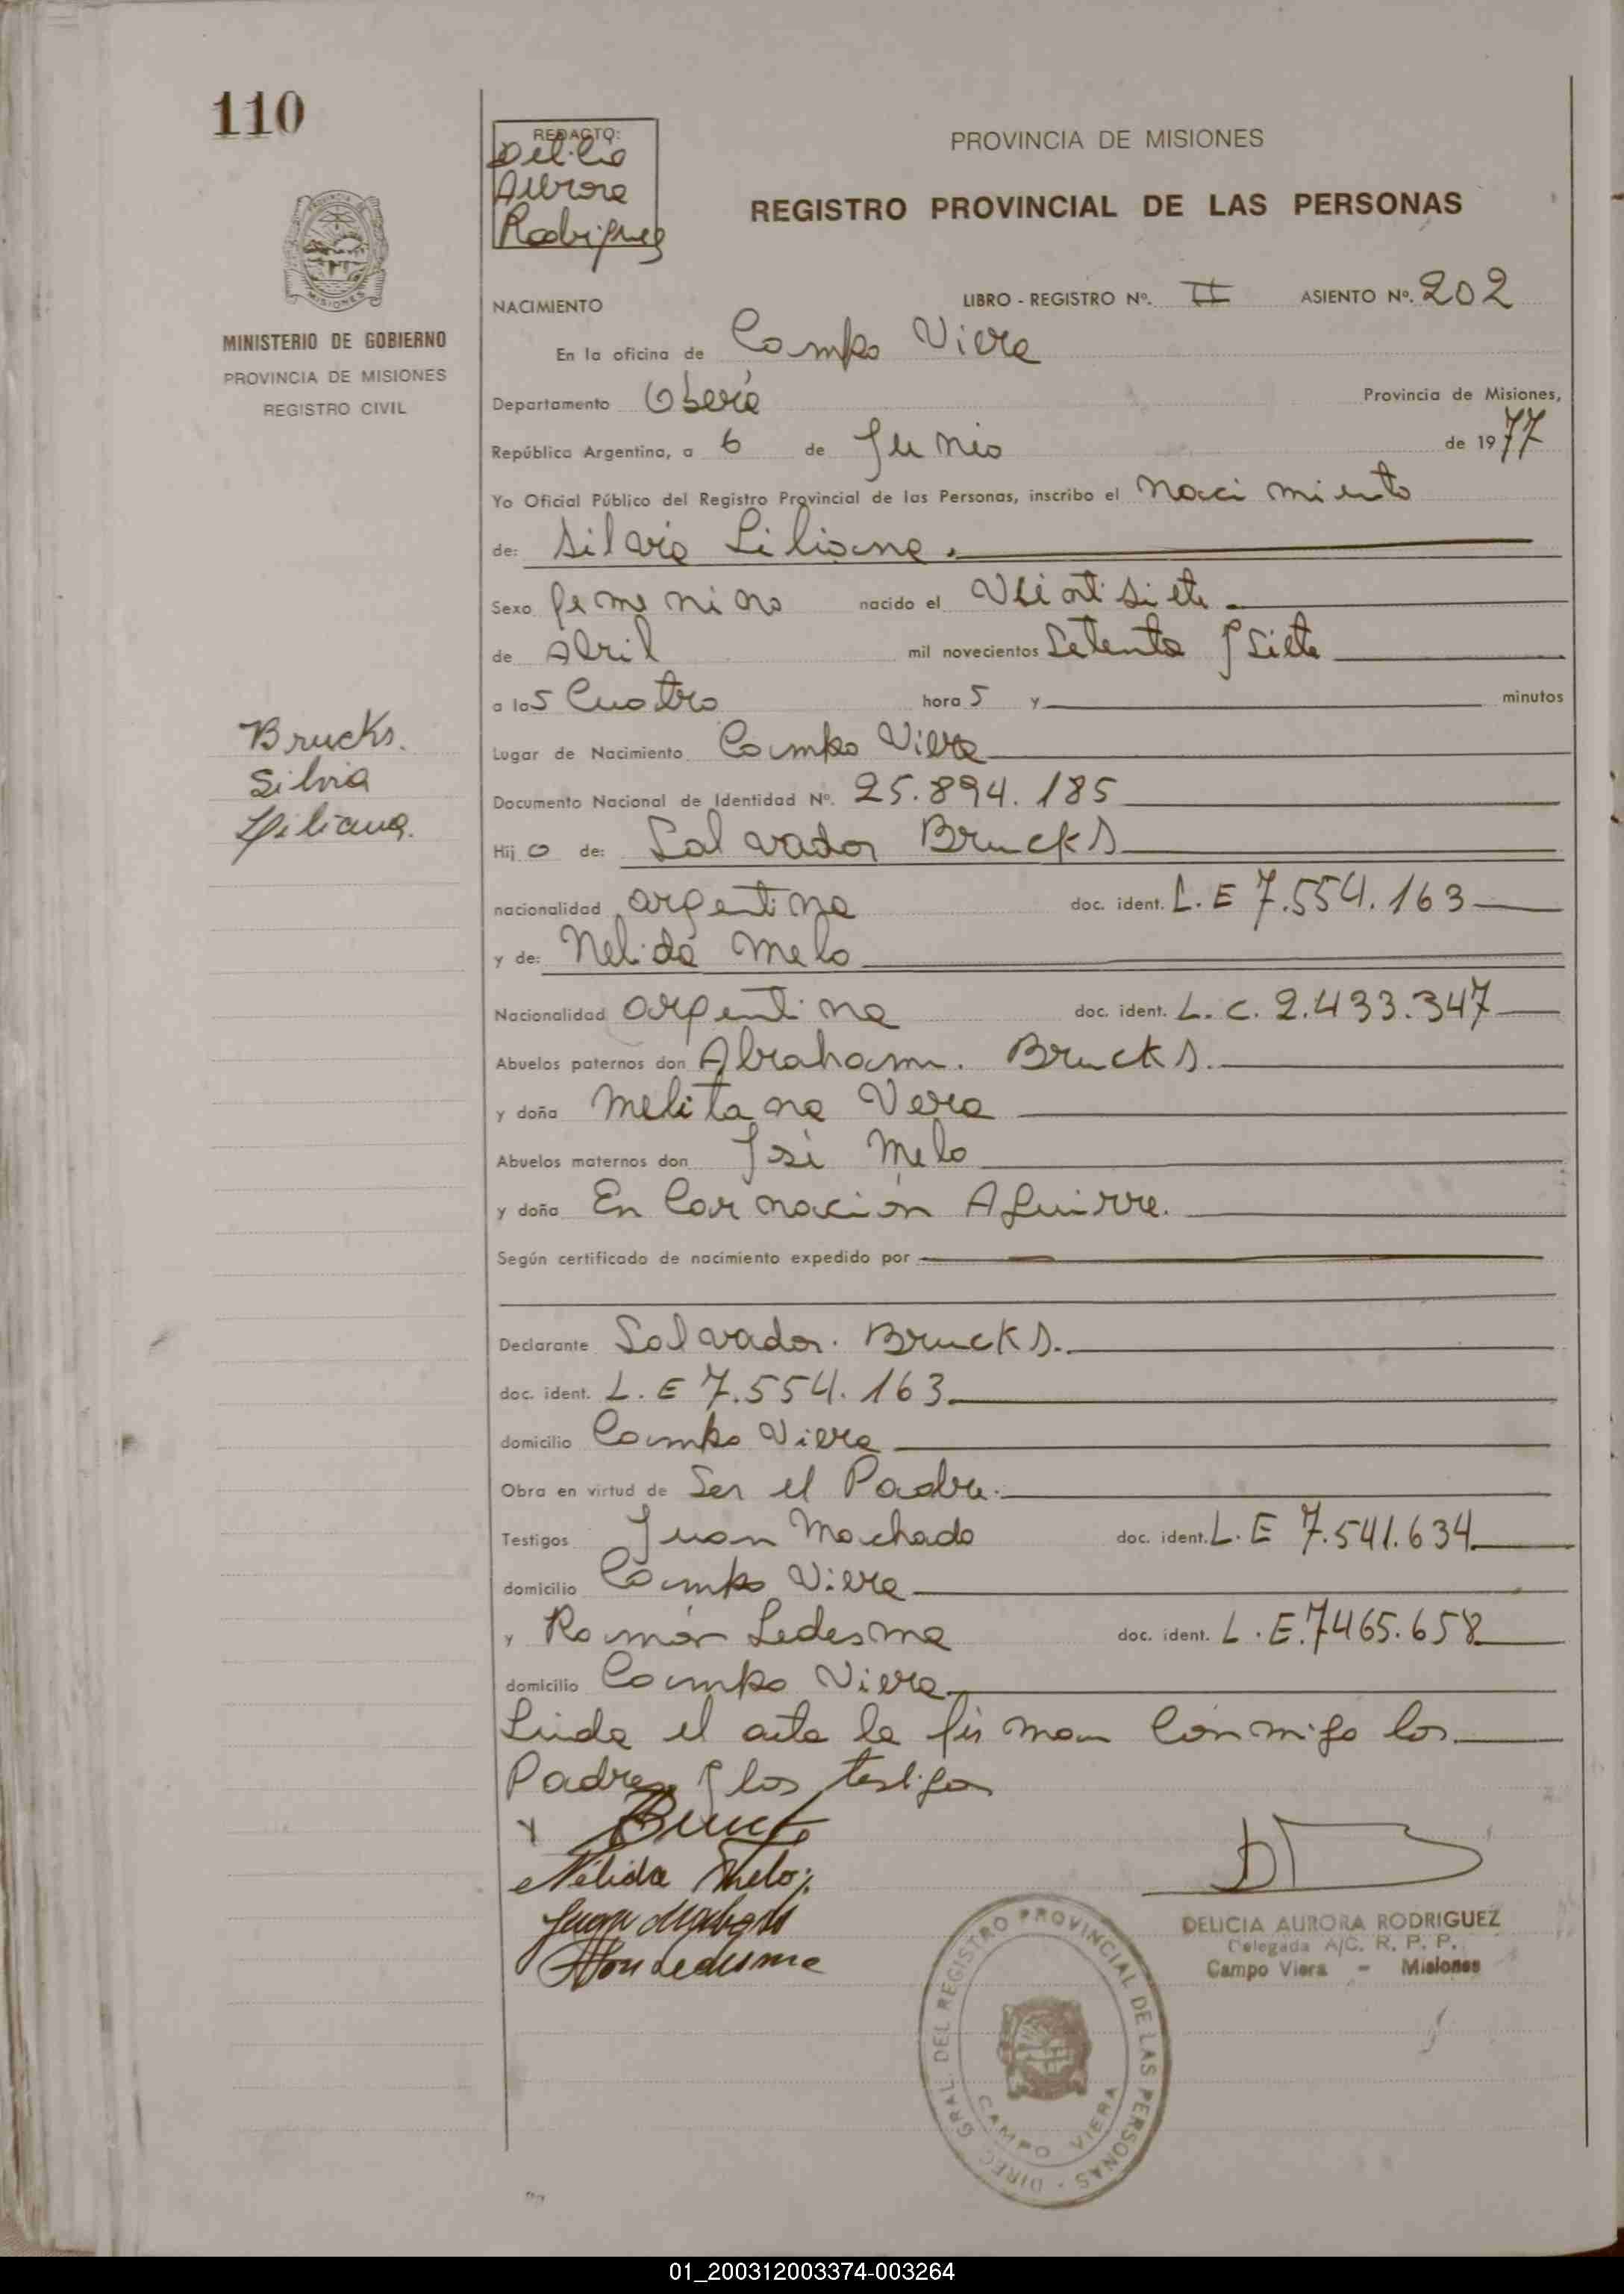 110
REDACTO:
Delicia
Aurora
Rodriguez
PROVINCIA DE MISIONES
REGISTRO PROVINCIAL DE LAS PERSONAS
MINISTERIO DE GOBIERNO
PROVINCIA DE MISIONES
REGISTRO CIVIL
NACIMIENTO LIBRO - REGISTRO Nº. II ASIENTO Nº. 202
En la oficina de Campo Viera
Departamento Oberá Provincia de Misiones,
República Argentina, a 6 de Junio de 1977
Yo Oficial Público del Registro Provincial de las Personas, inscribo el Nacimiento
de: Silvia Liliana.
Sexo femenino nacido el Veintisiete
de Abril mil novecientos Setenta y Siete
a las Cuatro horas y minutos
Brucks.
Silvia
Liliana.
Lugar de Nacimiento Campo Viera
Documento Nacional de Identidad Nº. 25.894.185
Hija de: Salvador Brucks
nacionalidad argentina doc. ident. L.E 7.554.163
y de: Nelida Melo
Nacionalidad argentina doc. ident. L.C. 2.433.347
Abuelos paternos don Abraham. Brucks.
y doña Melitana Vera
Abuelos maternos don José Melo
y doña Encarnación Aguirre.
Según certificado de nacimiento expedido por
Declarante Salvador. Brucks.
doc. ident. L.E 7.554.163
domicilio Campo Viera
Obra en virtud de Ser el Padre.
Testigos Juan Machado doc. ident. L.E 7.541.634
domicilio Campo Viera
y Ramón Ledesma doc. ident. L.E. 7465.658
domicilio Campo Viera
Leida el acta la firman conmigo los
Padres y los testigos
Nélida Melo
Ledesma
DELICIA AURORA RODRIGUEZ
Delegada A/C. R. P. P.
Campo Viera - Misiones
DIREC. GRAL. DEL REGISTRO PROVINCIAL DE LAS PERSONAS
CAMPO VIERA
01_200312003374-003264